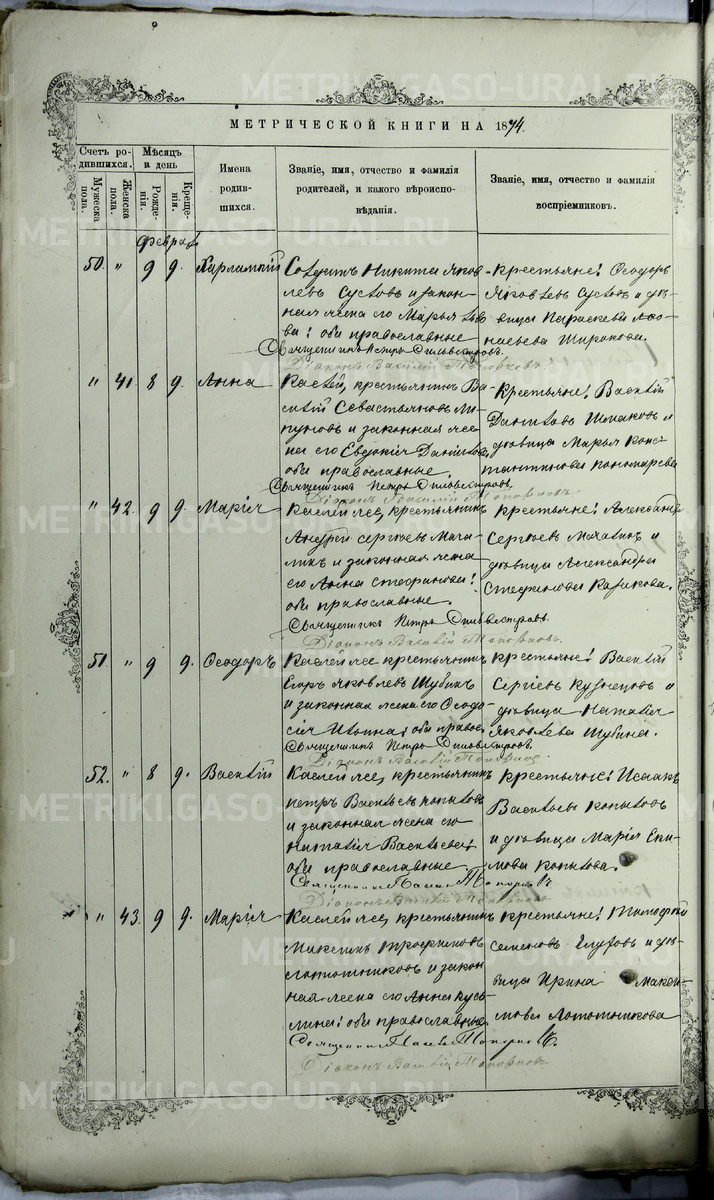 МЕТРИЧЕСКОЙ КНИГИ НА 1874.
Счетъ ро-
дившихся.
Мужеска
пола.
Женска
пола.
Мѣсяцъ
и день
Рожде-
нія.
Креще-
нія.
Имена
родив-
шихся.
Званіе, имя, отчество и фамилія
родителей, и какого вѣроиспо-
вѣданія.
Званіе, имя, отчество и фамилія
воспріемниковъ.
Февраль
50. " 9 9. Харлампій
Солдатъ Никита Яков
левъ Сустовъ и закон-
ная жена его Марья
оба православные
Священникъ Петръ Сильвестровъ.
Діаконъ Василій
Крестьяне: Ѳеодоръ
Яковлевъ Сустовъ и дѣ-
вица Параскева
Широкова.
" 41. 8 9. Анна
Каслей, крестьянинъ Ва-
силій Севастьяновъ Ли-
пуновъ и законная же-
на его Евдокія Данилова
оба православные.
Священникъ Петръ Сильвестровъ.
Діаконъ Василій
Крестьяне: Василій
Даниловъ Шмаковъ и
дѣвица Марья Конс-
тантинова Пономарева
" 42. 9 9. Марія
Каслей же, крестьянинъ
Андрей Сергѣевъ
и законная жена
его Анна Стефанова:
оба православные.
Священникъ Петръ Сильвестровъ.
Діаконъ Василій
Крестьяне: Александръ
Сергѣевъ и
дѣвица Александра
Стефанова Казакова.
51. " 9 9. Ѳеодоръ
Каслей же крестьянинъ
Егоръ Яковлевъ Шубинъ
и законная жена его Ѳеодо-
сія Ильина: оба правос.
Священникъ Петръ Сильвестровъ.
Діаконъ Василій
Крестьяне: Василій
Сергіевъ Кузнецовъ и
дѣвица Наталія
Яковлева Шубина.
52. " 8 9. Василій
Каслей же, крестьянинъ
Петръ Васильевъ Копытовъ
и законная жена его
Наталія Васильева:
оба православные.
Священникъ
Діаконъ Василій
Крестьяне: Исаакъ
Васильевъ Копытовъ
и дѣвица Марія Еки-
мова Копытова.
" 43. 9 9. Марія
Каслей же, крестьянинъ
Максимъ Трофимовъ
Лотошниковъ и закон
ная жена его Анна Кузь-
мина: оба православные.
Священникъ
Діаконъ Василій
Крестьяне: Тимофей
Семеновъ и дѣ-
вица Ирина Макси-
мова Лотошникова
METRIKI.GASO-URAL.RU